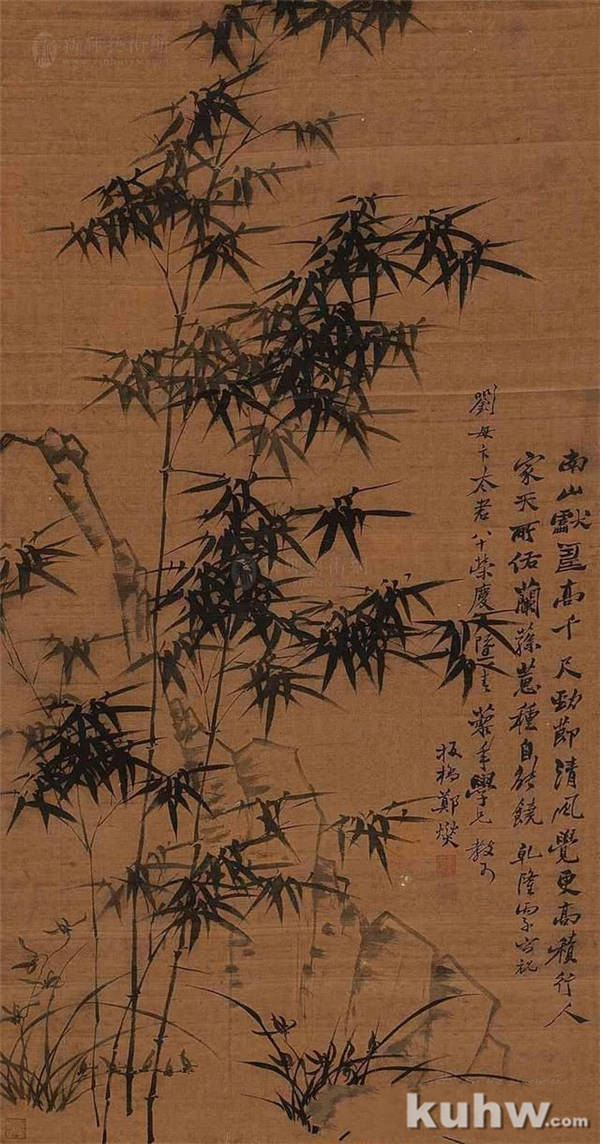 南山獻壽高千尺勁節清風覺更高積行人
家天所佑蘭蓀蕙種自饒 乾隆
劉母卞太君八十榮慶 年學兄教
板橋鄭燮
kuhw.com